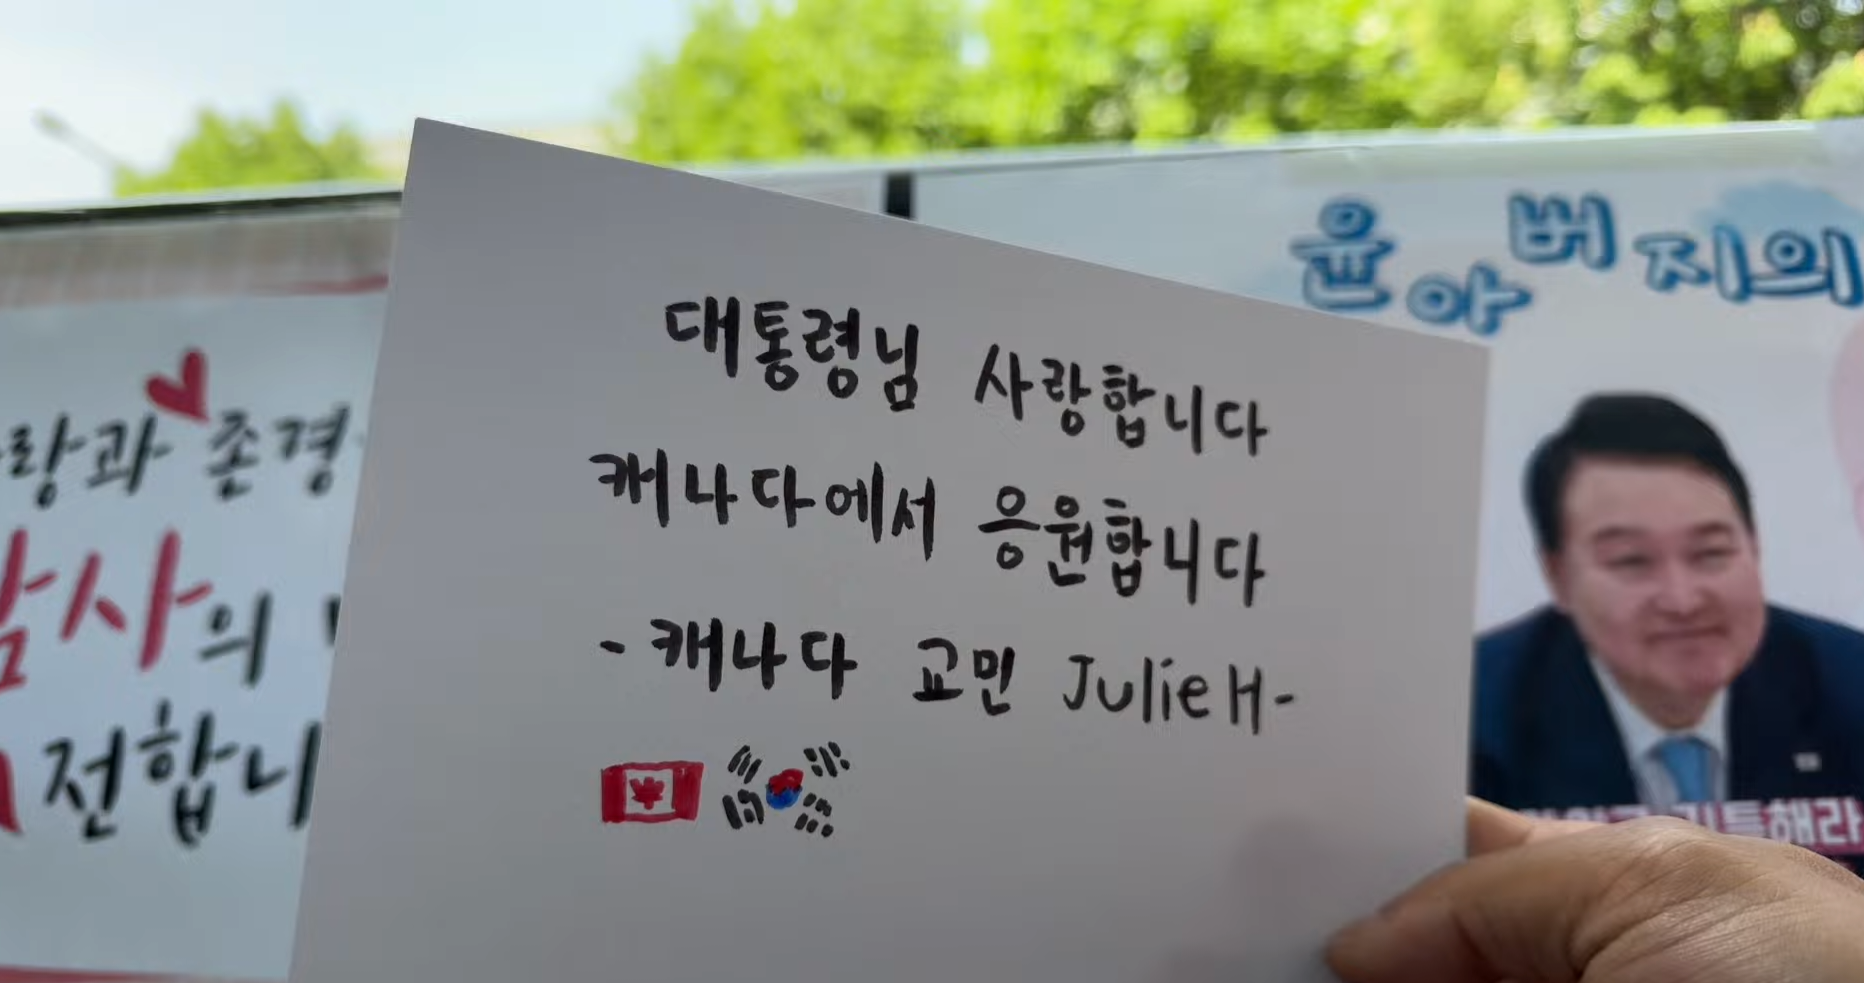 대통령님 사랑합니다
캐나다에서 응원합니다
- 캐나다 교민 Julie H-
랑과 존경
감사의
전합니
윤아버지의
해라